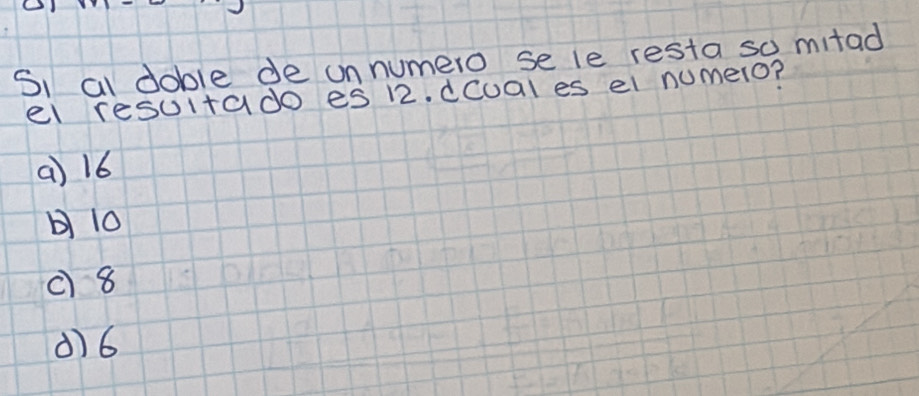 Si al doble de un numero se le resta su mitad
el resultado es 12. ¿Cual es el numero?
a) 16
b) 10
c) 8
d) 6